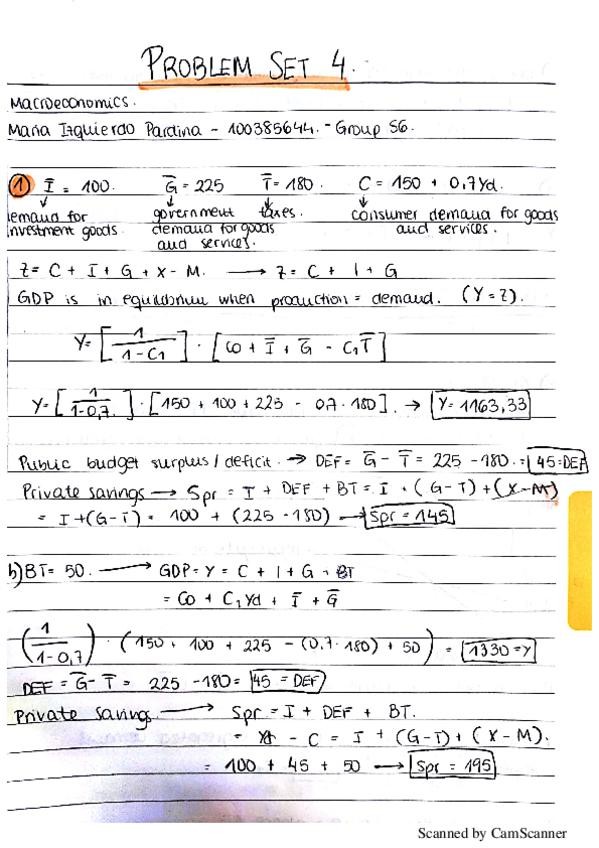 PROBLEM SET 4.
Macroeconomics.
Maria Izquierdo Pardina - 100385644. - Group 56.
① Ī = 100. Ḡ = 225 T̄ = 180. C = 150 + 0,7Yd.
↓ ↓ ↓ ↓
demand for government taxes. consumer demand for goods
investment goods. demand for goods and services.
and services.
Z = C + I + G + X - M. → Z = C + I + G
GDP is in equilibrium when production = demand. (Y = Z).
Y = [1/(1 - C1)] · [C0 + Ī + Ḡ - C1T̄]
Y = [1/(1-0,7.)] · [150 + 100 + 225 - 0,7 · 180]. → Y = 1163,33
Public budget surplus / deficit. → DEF = Ḡ - T̄ = 225 - 180. = 45 = DEF
Private savings → Spr = I + DEF + BT = I + (G-T) + (X-M)
= I + (G-T) = 100 + (225 - 180) → Spr = 145
b) BT = 50. → GDP = Y = C + I + G + BT
= C0 + C1Yd + Ī + Ḡ
(1/(1-0,7)) · (150 + 100 + 225 - (0,7 · 180) + 50) = 1330 = Y
DEF = Ḡ - T̄ = 225 - 180 = 45 = DEF
Private savings. → Spr = I + DEF + BT.
= - C = I + (G-T) + (X - M).
= 100 + 45 + 50 → Spr = 195
Scanned by CamScanner